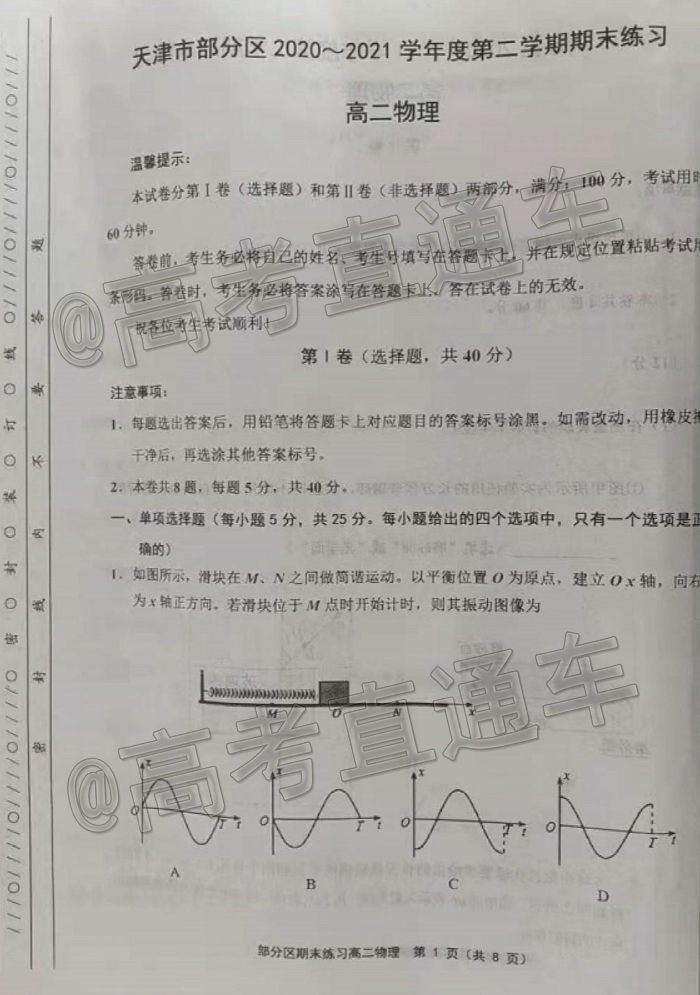 天津市部分区2020～2021学年度第二学期期末练习
高二物理
温馨提示：
本试卷分第Ⅰ卷（选择题）和第Ⅱ卷（非选择题）两部分，满分：100分，考试用时
60分钟。
答卷前，考生务必将自己的姓名、考生号填写在答题卡上，并在规定位置粘贴考试用
条形码。答卷时，考生务必将答案涂写在答题卡上、答在试卷上的无效。
祝各位考生考试顺利！
第Ⅰ卷（选择题，共40分）
注意事项：
1．每题选出答案后，用铅笔将答题卡上对应题目的答案标号涂黑。如需改动，用橡皮擦
干净后，再选涂其他答案标号。
2．本卷共8题，每题5分，共40分。
一、单项选择题（每小题5分，共25分。每小题给出的四个选项中，只有一个选项是正
确的）
1．如图所示，滑块在M、N之间做简谐运动。以平衡位置O为原点，建立Ox轴，向右
为x轴正方向。若滑块位于M点时开始计时，则其振动图像为
M O N x
x O T t
A
x O T t
B
x O T t
C
x O T t
D
部分区期末练习高二物理 第1页（共8页）
密○封○装○订○线
密封线内不要答题
@高考直通车
@高考直通车